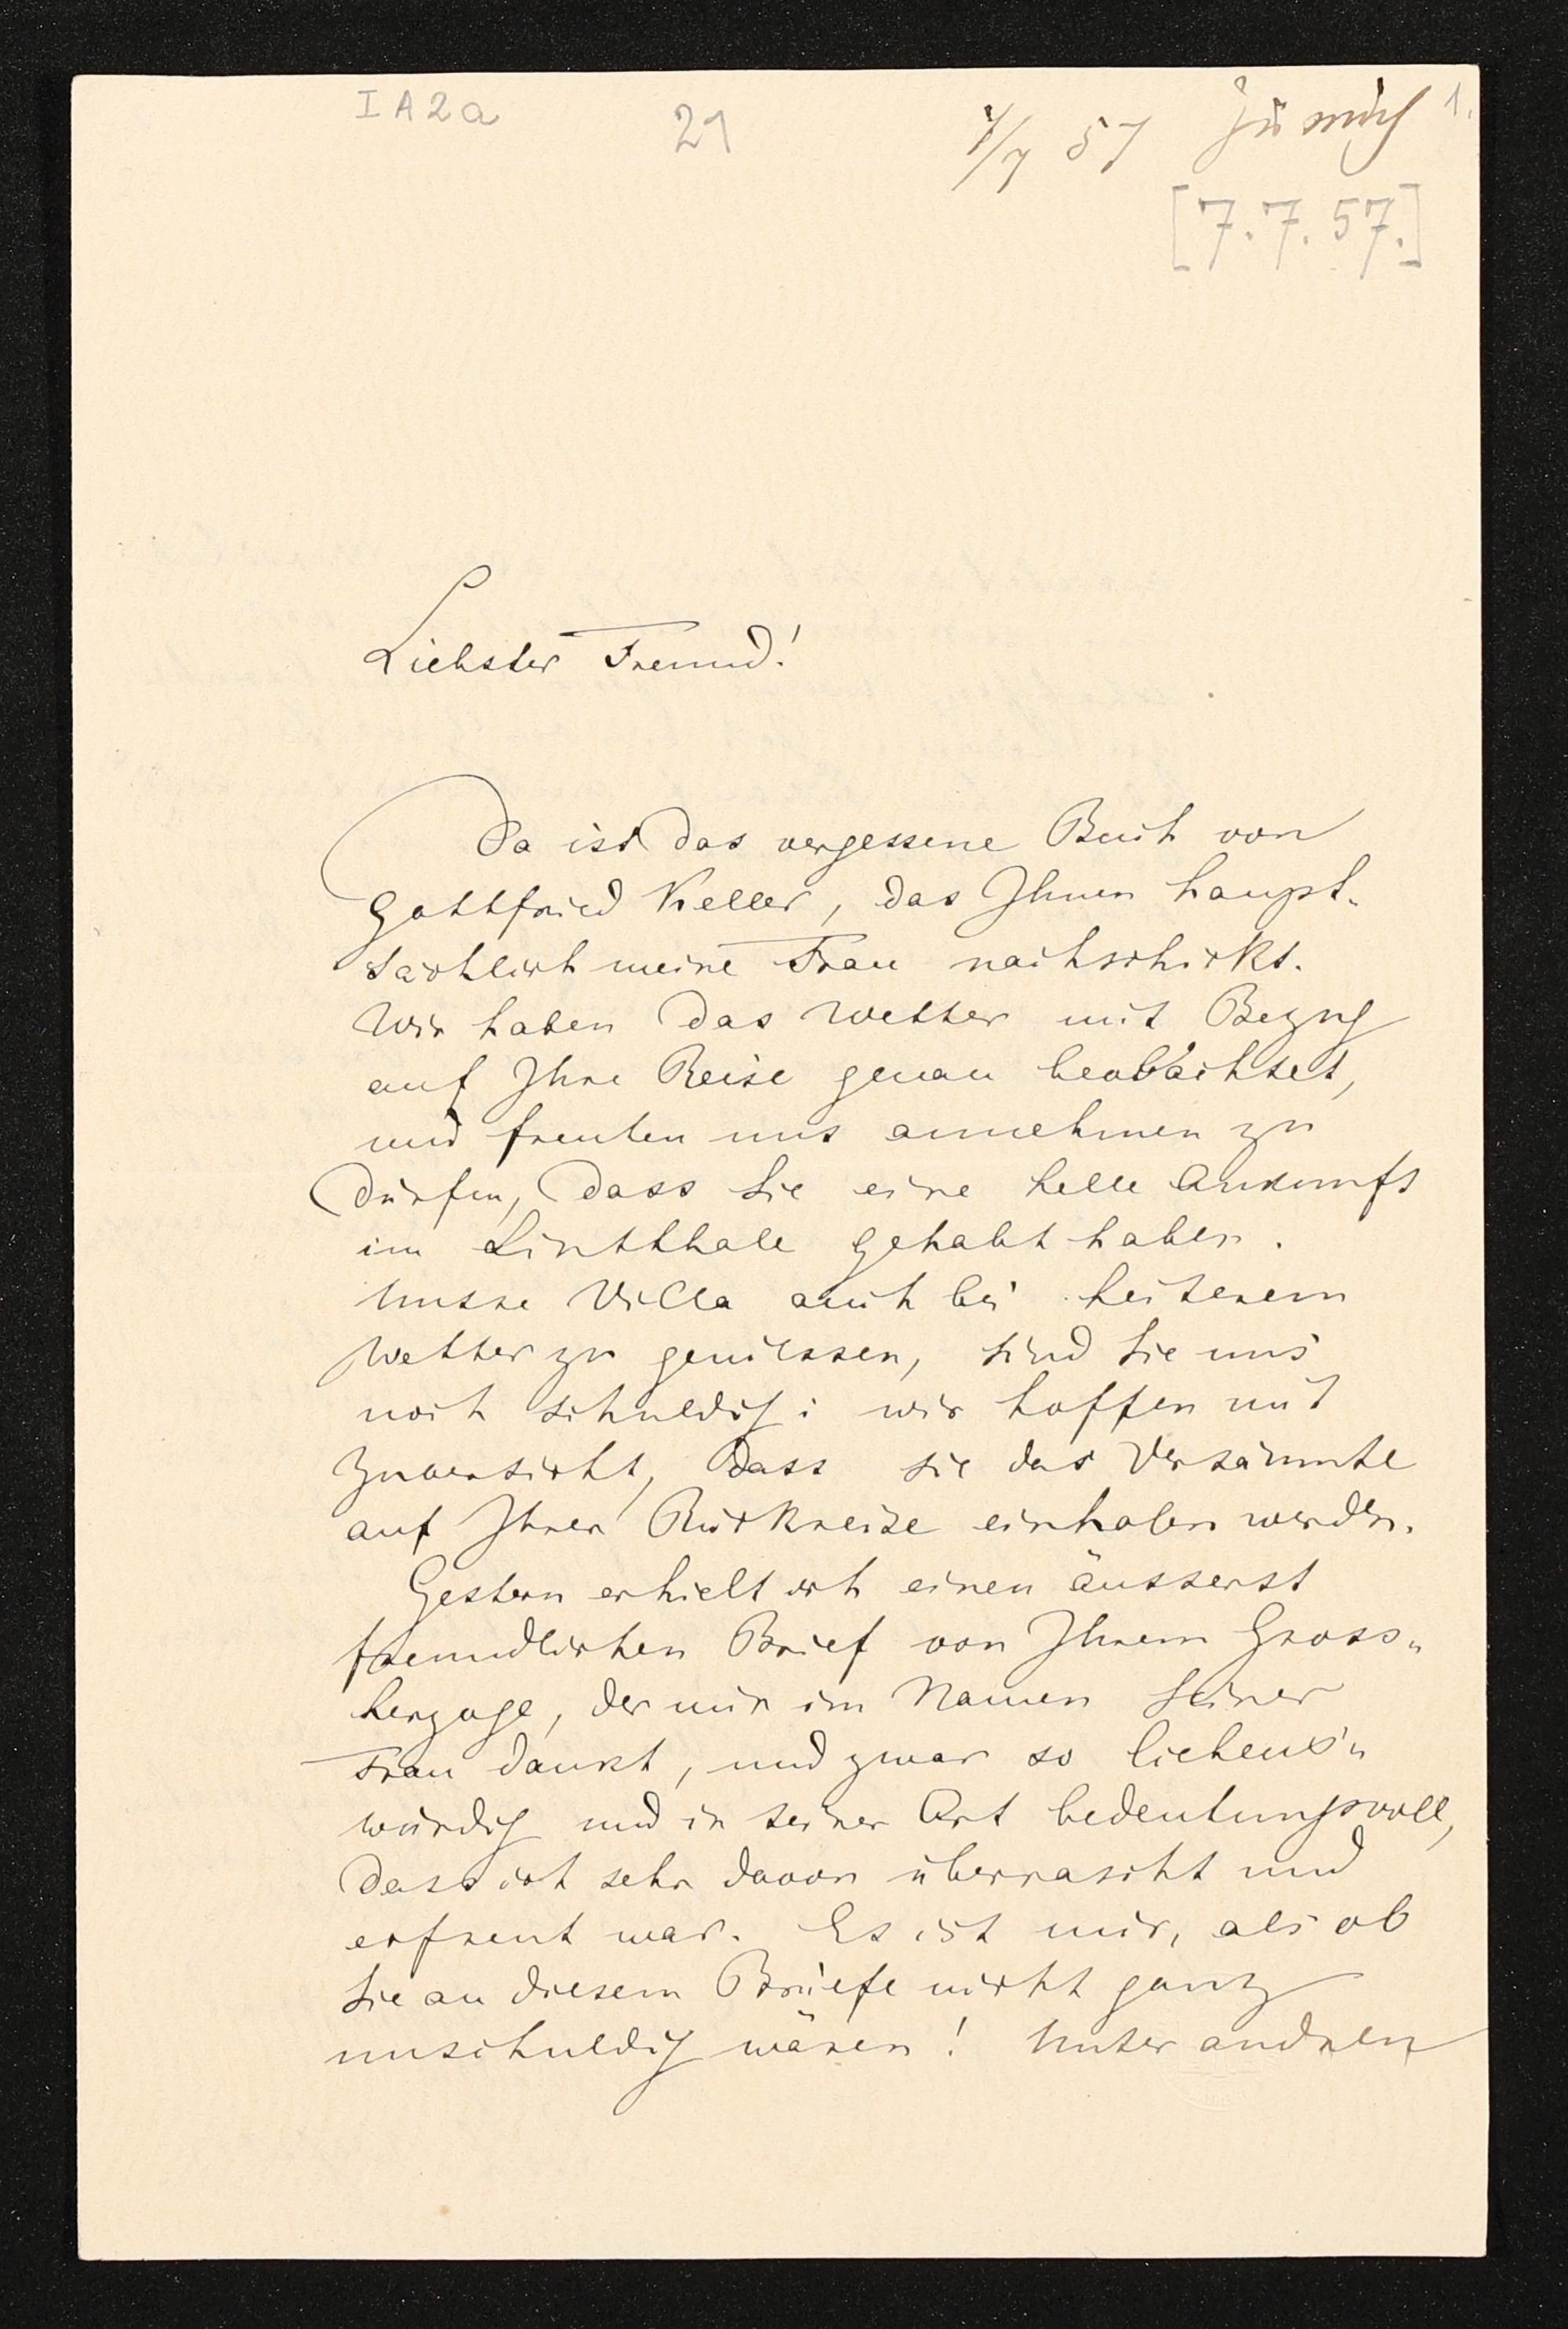 IA2a 21 7/7 57 Zürich 1.
[7.7.57.]
Liebster Freund!
Da ist das vergessene Buch von
Gottfried Keller, das Ihnen haupt-
sächlich meine Frau nachschickt.
Wir haben das Wetter mit Bezug
auf Ihre Reise genau beobachtet,
und freuten uns annehmen zu
dürfen, dass Sie eine helle Ankunft
im Linththale gehabt haben.
Unsre Villa auch bei heiterem
Wetter zu geniessen, sind Sie uns
noch schuldig: wir hoffen mit
Zuversicht, dass Sie das Versäumte
auf Ihrer Rückreise einholen werden.
Gestern erhielt ich einen äusserst
freundlichen Brief von Ihrem Gross-
herzoge, der mir im Namen seiner
Frau dankt, und zwar so liebens-
würdig und in seiner Art bedeutungsvoll,
dass ich sehr davon überrascht und
erfreut war. Es ist mir, als ob
Sie an diesem Briefe nicht ganz
unschuldig wären! Unter andren